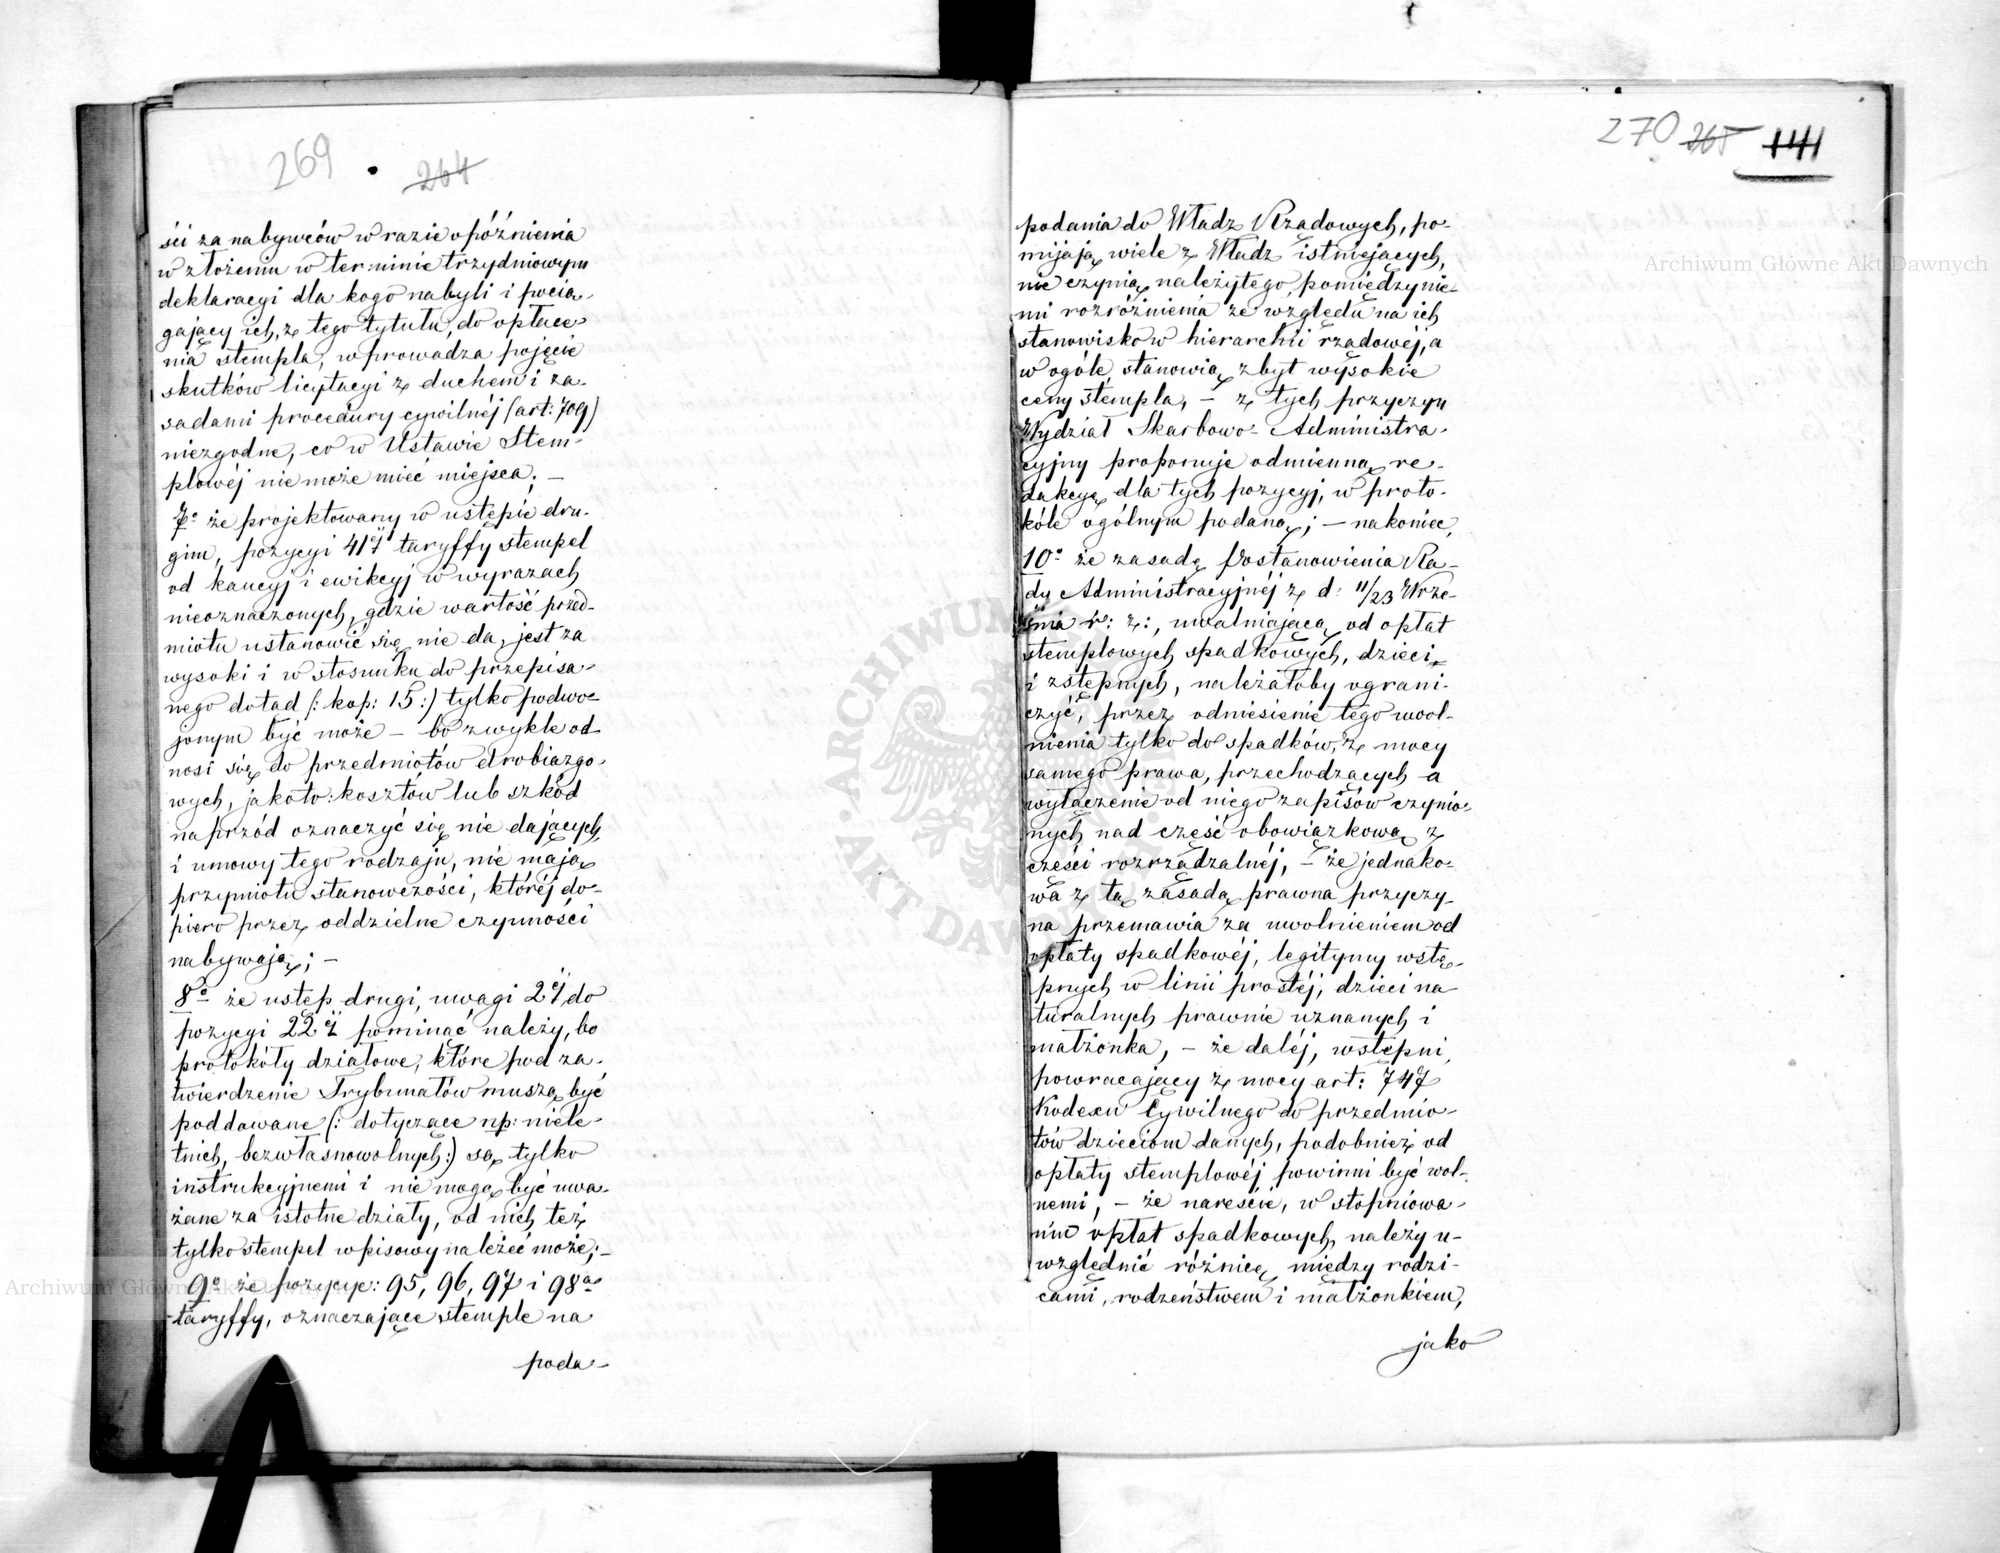 269 264
ści za nabywców w razie opóźnienia
w złożeniu w terminie trzydniowym
deklaracyi dla kogo nabyli i pocią-
gający ich, z tego tytułu, do opłace-
nia stempla, wprowadza pojęcie
skutków licytacyi z duchem i za-
sadami procedury cywilnéj (art: 709)
niezgodne, co w Ustawie Stem-
plowéj nie może mieć miejsca; —
7o że projektowany w ustępie dru-
gim, pozycyi 41éj taryffy stempel
od kaucyj i ewikcyj w wyrazach
nieoznaczonych, gdzie wartość przed-
miotu ustanowić się nie da, jest za
wysoki i w stosunku do przepisa-
nego dotąd (: kop: 15 :) tylko podwo-
jonym być może — bo zwykle od-
nosi się do przedmiotów drobiazgo-
wych, jakoto: kosztów lub szkód
naprzód oznaczyć się nie dających,
i umowy tego rodzaju, nie mają
przymiotu stanowczości, któréj do-
piero przez oddzielne czynności
nabywają; —
8o że ustęp drugi, uwagi 2éj do
pozycyi 22éj pominąć należy, bo
protokóły działowe, które pod za-
twierdzenie Trybunałów muszą być
poddawane (: dotyczące np: niele-
tnich, bezwłasnowolnych :) są tylko
instrukcyjnemi i nie mogą być uwa-
żane za istotne działy, od nich też
tylko stempel wpisowy należeć może; —
9o że pozycye: 95, 96, 97 i 98a
taryffy, oznaczające stemple na
poda-
270 265 141
podania do Władz Rządowych, po-
mijają wiele z Władz istniejących,
nie czynią należytego, pomiędzy nie-
mi rozróżnienia ze względu na ich
stanowisko w hierarchii rządowéj, a
w ogóle, stanowią zbyt wysokie
ceny stempla, — z tych przyczyn
Wydział Skarbowo-Administra-
cyjny proponuje odmienną re-
dakcyę dla tych pozycyj, w proto-
kóle ogólnym podaną; — nakoniec,
10o że zasadę Postanowienia Ra-
dy Administracyjnéj z d: 11/23 Wrze-
śnia r: z:, uwalniającą od opłat
stemplowych spadkowych, dzieci
i zstępnych, należałoby ograni-
czyć, przez odniesienie tego uwol-
nienia tylko do spadków, z mocy
samego prawa, przechodzących a
wyłączenie od niego zapisów czynio-
nych nad część obowiązkową z
części rozrządzalnéj, — że jednako-
wa z tą zasadą prawna przyczy-
na przemawia za uwolnieniem od
opłaty spadkowéj, legitymy wstę-
pnych w linii prostéj, dzieci na-
turalnych prawnie uznanych i
małżonka, — że daléj, wstępni,
powracający z mocy art: 747
Kodexu Cywilnego do przedmio-
tów dzieciom danych, podobnież od
opłaty stemplowéj powinni być wol-
nemi, — że nareście, w stopniowa-
niu opłat spadkowych należy u-
względnić różnicę między rodzi-
cami, rodzeństwem i małżonkiem,
jako
Archiwum Główne Akt Dawnych
Archiwum Główne Akt Dawnych